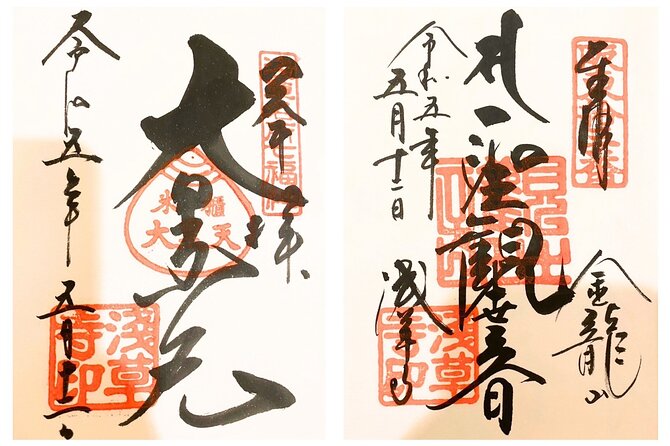 大黒天
令和五年五月十二日
浅草寺印
奉拝
聖観世音
金龍山
浅草寺
令和五年
五月十二日
浅草寺印